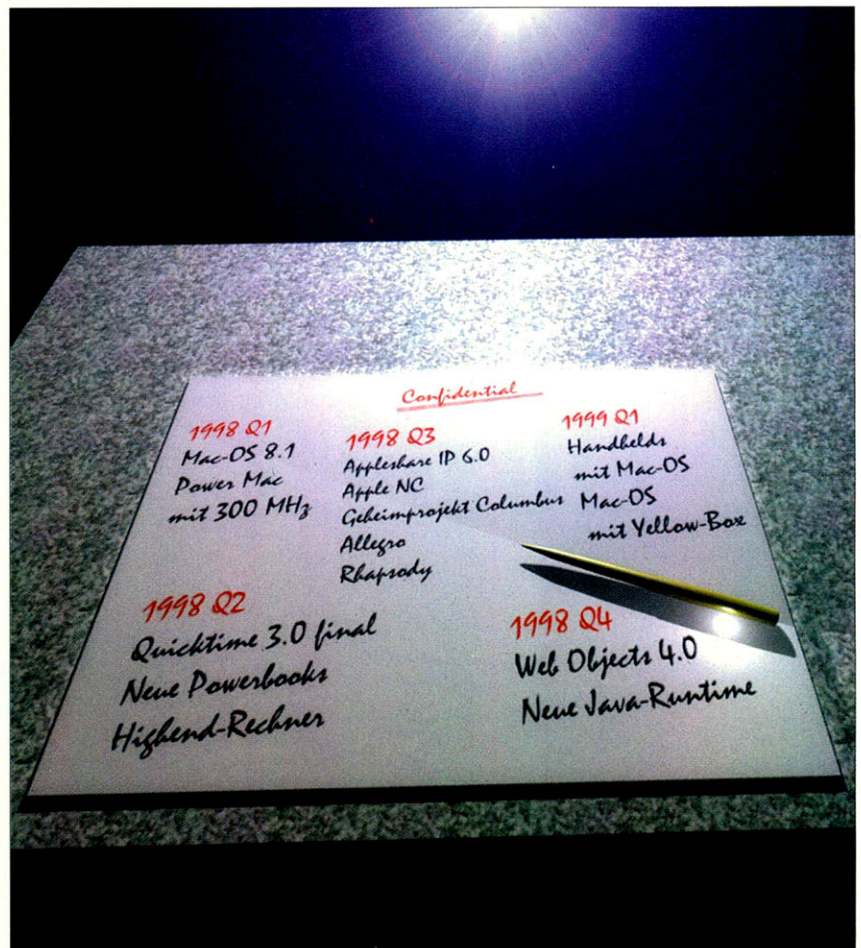 Confidential
1998 Q1
Mac-OS 8.1
Power Mac
mit 300 MHz
1998 Q2
Quicktime 3.0 final
Neue Powerbooks
Highend-Rechner
1998 Q3
Appleshare IP 6.0
Apple NC
Geheimprojekt Columbus
Allegro
Rhapsody
1998 Q4
Web Objects 4.0
Neue Java-Runtime
1999 Q1
Handhelds
mit Mac-OS
Mac-OS
mit Yellow-Box